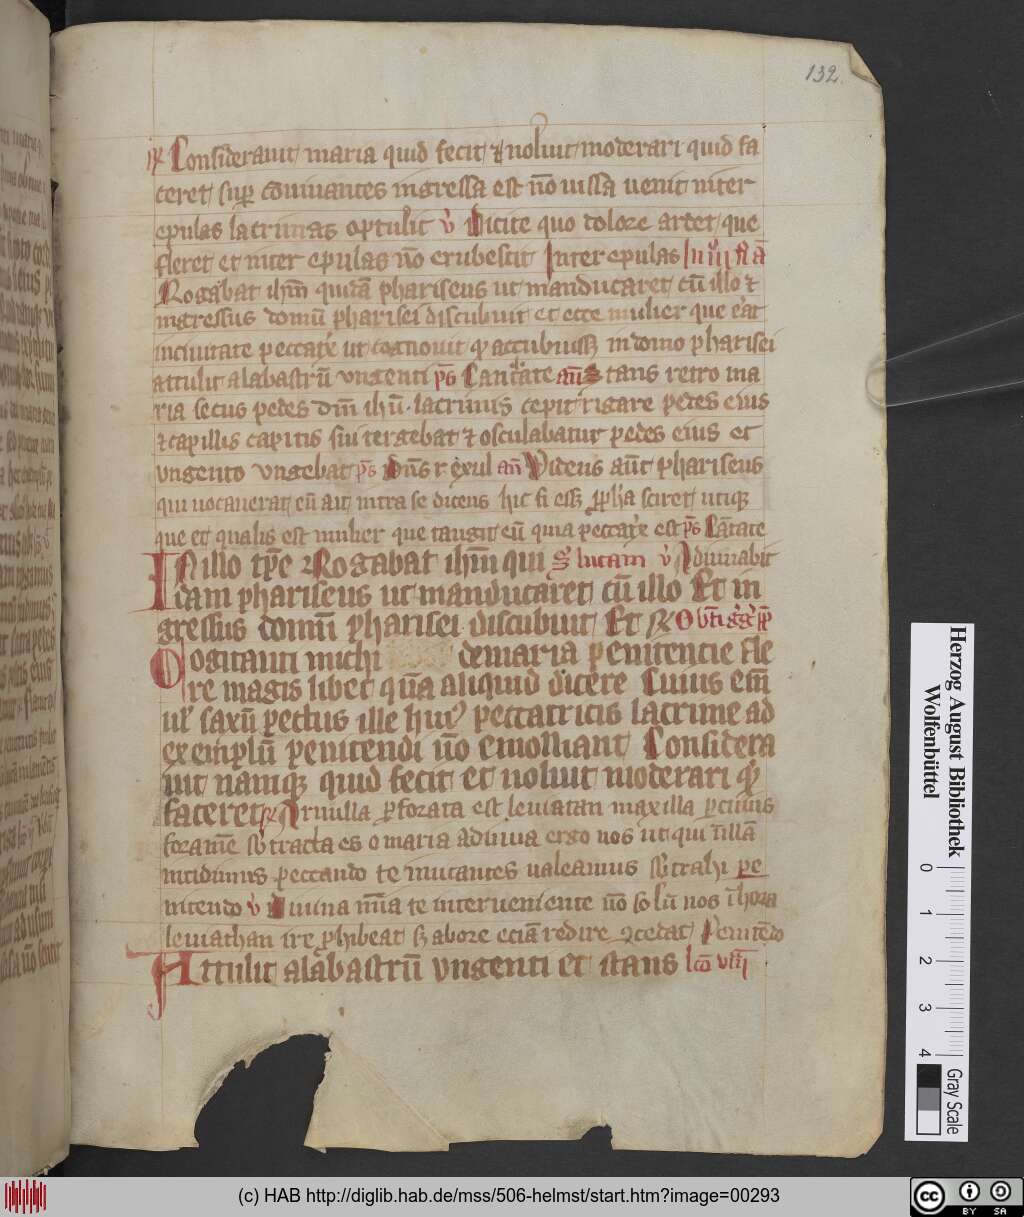 132.
℟ Considerauit maria quid fecit ⁊ noluit moderari quid fa
ceret sup̄ conuiuantes ingressa est nō iussa uenit inter
epulas lacrimas optulit v̓ Dicite quo dolore ardet que
fleret et inter epulas nō erubescit Inter epulas
Rogabat ihm̄ quidā phariseus ut manducaret cū illo ⁊
ingressus domū pharisei discubuit et ecce mulier que erat
inciuitate peccat͛x ut cognouit q accubuissꝫ indomo pharisei
attulit alabastrū vngenti ps̄ Cantate an̄ Stans retro ma
ria secus pedes dn̄i ihū lacrimis cepit rigare pedes eius
⁊ capillis capitis sui tergebat ⁊ osculabatur pedes eius et
vngento vngebat ps̄ Dn̄s r exul an̄ Videns aūt phariseus
qui uocauerat eū ait intra se dicens hic si essꝫ ꝓph̄a sciret utiqꝫ
que et qualis est mulier que tangit eū quia peccat͛x est ps̄ Cantate
In illo tp̄e Rogabat ihm̄ qui s̄ lucam v̓ Adiuuabit
dam phariseus ut manducaret cū illo Et in
gressus domū pharisei discubuit Et ℟
Cogitanti michi de maria penitencie fle
re magis libet quā aliquid dicere Cuius em̄
ul̓ saxū pectus ille huiꝰ peccatricis lacrime ad
exemplū penitendi nō emolliant Considera
uit namqꝫ quid fecit et noluit moderari qd̓
faceret ℟ Armilla ꝑforata est leuiatan maxilla ꝑ cuius
foramē sb̓tracta es o maria adiuua ergo nos ut qui in illā
incidimus peccando te iuuantes ualeamus sb̓trahi pe
nitendo v̓ Diuina nr̄a te interueniente nō solū nos ī hora
leuiathan ire ꝓhibeat sꝫ abore eciā redire ꝯcedat Penitēdo
Attulit alabastrū vngenti et stans lcō viii
Herzog August Bibliothek
Wolfenbüttel
0 1 2 3 4
Gray Scale
(c) HAB http://diglib.hab.de/mss/506-helmst/start.htm?image=00293
cc BY SA